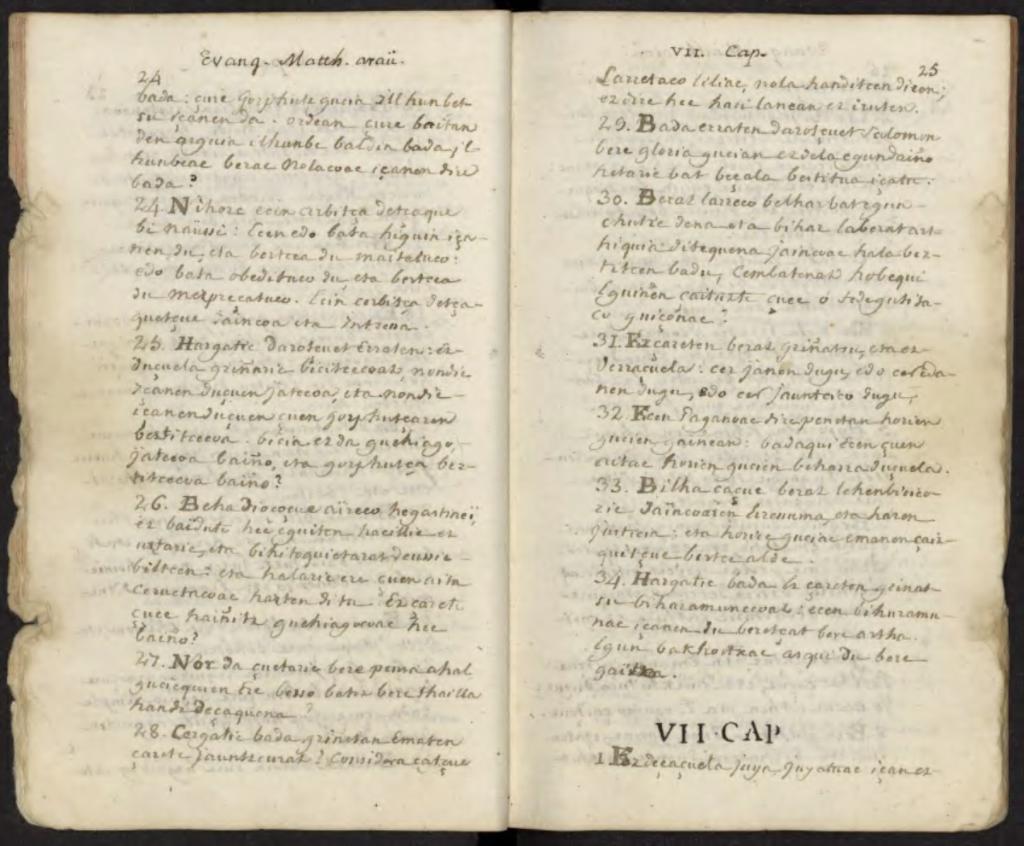 Evang. Matth. araü.
24
bada: çure gorphutz gucia ilhunbet-
su içanen da. ordean çure baitan
den arguia ilhunbe baldin bada, il-
hunbeac berac nolacoac içanen dire
bada?
24. Nihorc ecin cerbitça detçaque
bi naüssi: Ecen edo bata higuin iça-
nen du, eta bertcea du maitatuco:
edo bata obedituco du eta bertcea
du mezprecatuco. Ecin cerbitça detça-
queçue Jaincoa eta
25. Hargatic darotçuet erraten: ez-
duçuela griñaric bicitcecoaz, nondic
içanen duçuen jatecoa, eta nondic
içanen duçuen çuen gorphutcaren
beztitcecoa. bicia ez da guehiago,
jatecoa baiño, eta gorphutça bez-
titcecoa baiño?
26. Beha diocoçue aireco hegastinei,
ez baidute hec eguiten hacillic ez
uztaric, eta bihitoquietarat deusic
biltcen: eta halaric ere çuen aita
Ceruetacoac hazten ditu. Ez çarete
çuec hainitz guehiagocoac hec
baiño?
27. Nor da çuetaric bere pena ahal
guciequien ere, besso batez bere thailla
handi deçaquena?
28. Cergatic bada grinetan ematen
çarete jauntzeunaz? Considera çatçue
VII. Cap.
25
Larretaco liliac, nola handitcen diren;
ez dire hec hari lanean ez iruten.
29. Bada erraten darotçuet Salomon
bere gloria gucian ez dela egundaiño
hetaric bat beçala beztitua içatu.
30. Beraz larreco belhar bat egun
chutic dena eta bihar laberat art-
hiquia ditequena jaincoac hala bez-
titcen badu, Cembatenaz hobequi
Eguinen çaituzte çuec o fedegutita-
co guiçonac?
31. Ez çareten beraz griñatsu, eta ez
derraçuela: cer janen dugu, edo cer eda-
nen dugu, edo cer jauntcico dugu,
32. Ecen Paganoac dire penetan horien
gucien gainean: badaqui ecen çuen
aitac horien gucien beharra duçuela.
33. Bilha çaçue beraz lehenbicico-
ric Jaincoaren Erresuma, eta haren
justicia: eta horiec guciac emanen çaiz-
quitçue bertce alde.
34. Hargatic bada ez çareten grinat-
su biharamunecoaz: ecen biharamu-
nac içanen du beretçat bere artha.
Egun bakhoitzac asqui du bere
gaitza.
VII. CAP
1. Ez deçaçuela juya, juyatuac içan ez